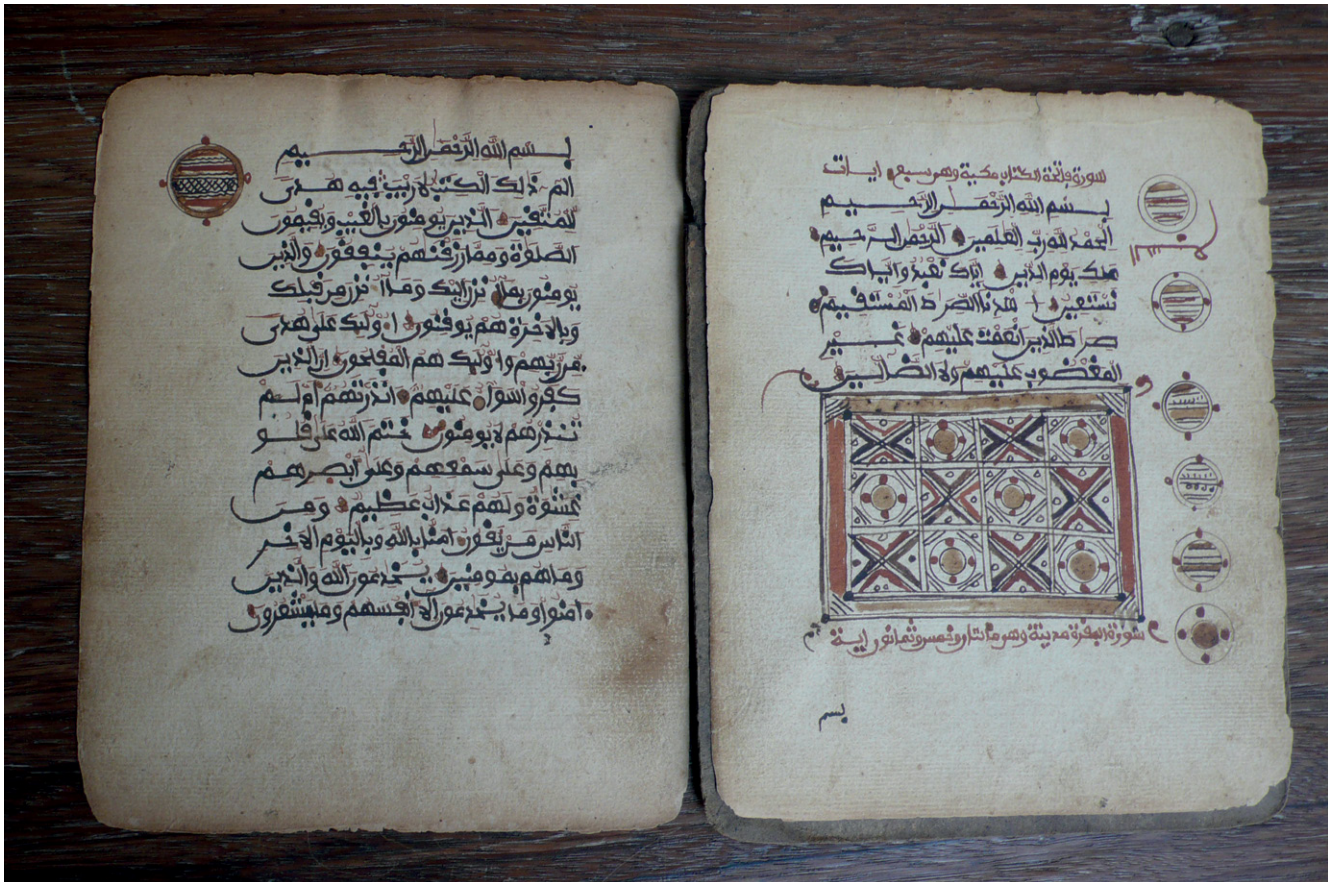 سورة فاتحة الكتاب مكية وهي سبع ايات
بسم الله الرحمن الرحيم
الحمد لله رب العلمين الرحمن الرحيم
ملك يوم الدين اياك نعبد واياك
نستعين اهدنا الصراط المستقيم
صراط الذين انعمت عليهم غير
المغضوب عليهم ولا الضالين
سورة البقرة مدينة وهي مائتان وخمس وثمانون اية
بسم
بسم الله الرحمن الرحيم
الم ذلك الكتب لا ريب فيه هدى
للمتقين الذين يومنون بالغيب ويقيمون
الصلوة ومما رزقنهم ينفقون والذين
يومنون بما انزل اليك وما انزل من قبلك
وبالاخرة هم يوقنون اولئك على هدى
من ربهم واولئك هم المفلحون ان الذين
كفروا سواء عليهم انذرتهم ام لم
تنذرهم لا يومنون ختم الله على قلو
بهم وعلى سمعهم وعلى ابصرهم
غشوة ولهم عذاب عظيم ومن
الناس من يقول امنا بالله وباليوم الاخر
وما هم بمومنين يخدعون الله والذين
امنوا وما يخدعون الا انفسهم وما يشعرون